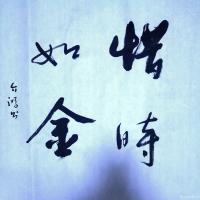 惜時
如金